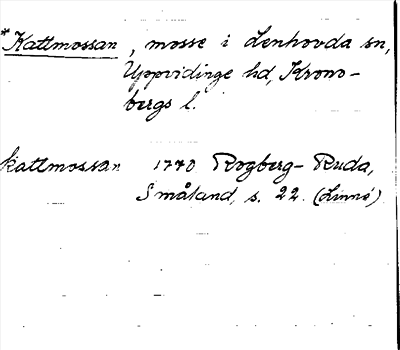 *Kattmossan, mosse i Lenhovda sn,
Uppvidinge hd, Krono-
bergs l.
Kattmossan 1770 Rogberg-Ruda,
Småland, s. 22. (Linné)